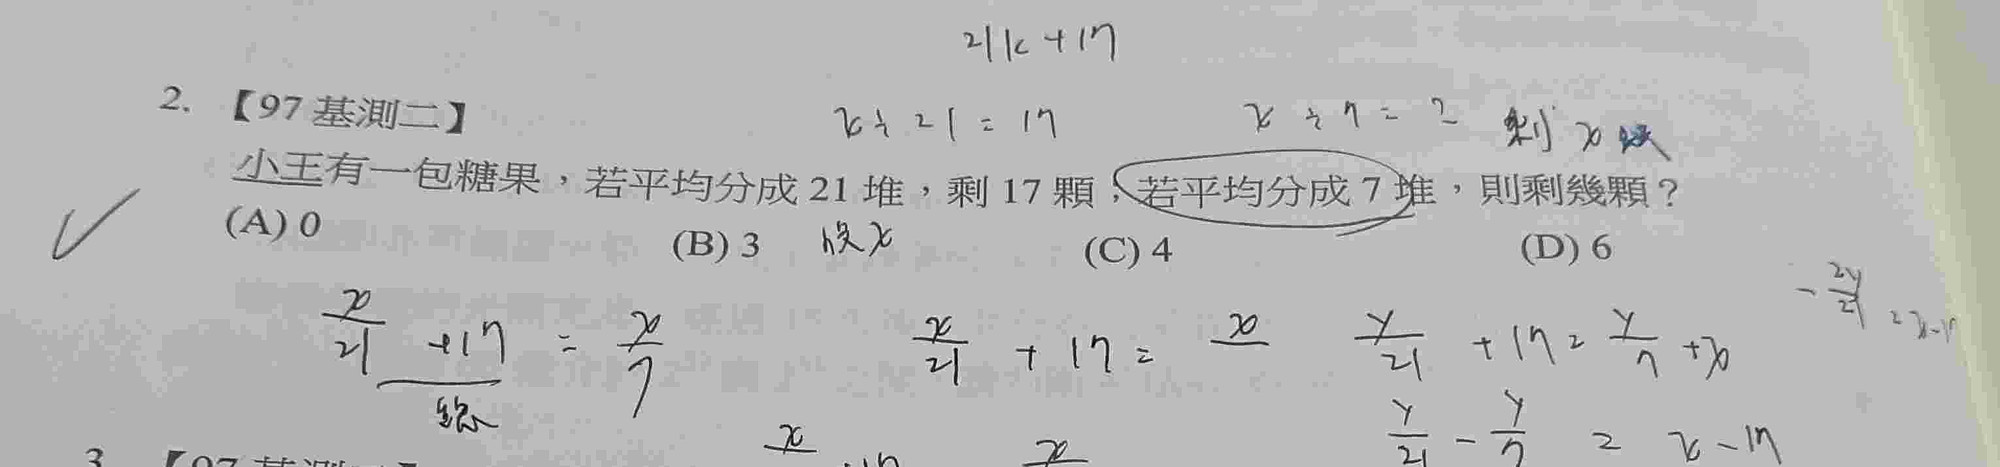 21k+17
2. 【97 基測二】
x÷21=17 x÷7=? 剩x
小王有一包糖果，若平均分成 21 堆，剩 17 顆；若平均分成 7 堆，則剩幾顆？
(A) 0 (B) 3 設x (C) 4 (D) 6
x/21 +17 = x/7 x/21 + 17 = x y/21 + 17 = y/7 + x -2y/21 = x-17
總
y/21 - y/7 = x-17
x x
3